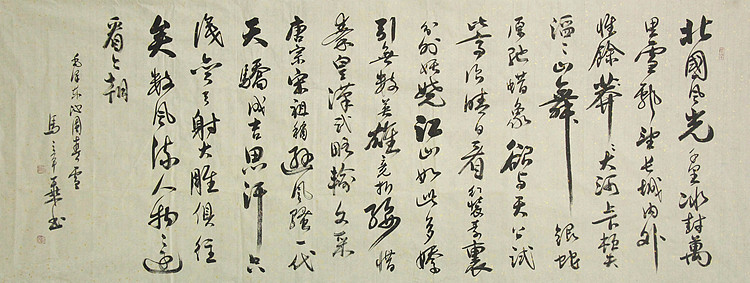 北國風光千里冰封萬
里雪飄望長城內外
惟餘莽莽大河上下頓失
滔滔山舞銀蛇
原馳蜡象欲與天公試
比高須晴日看紅裝素裹
分外妖嬈江山如此多嬌
引無數英雄競折腰惜
秦皇漢武略輸文采
唐宗宋祖稍遜風騷一代
天驕成吉思汗只
識彎弓射大雕俱往
矣數風流人物還
看今朝
毛澤東沁園春雪
馬華書